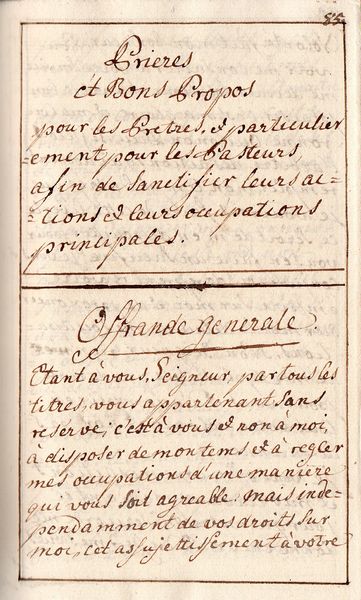 85
Prieres
ét Bons Propos
pour les Prêtres, et particulier
=ement pour les Pasteurs
afin de sanctifier leurs ac-
=tions et leurs occupations
principales.
Offrande generale.
Etant à vous, Seigneur, par tous les
titres, vous appartenant sans
reserve; c'est à vous et non à moi,
à disposer de mon tems et à regler
mes occupations d'une maniere
qui vous soit agreable. mais inde-
pendamment de vos droits sur
moi, cet assujettissement à vôtre